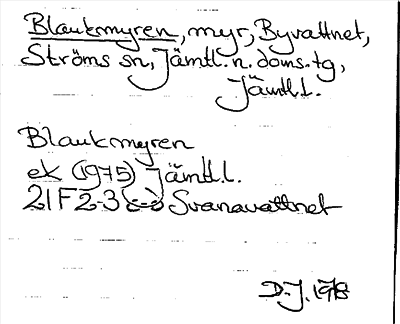 Blankmyren, myr, Byvattnet,
Ströms sn, Jämtl. n. doms. tg,
Jämtl. l.
Blankmyren
ek (1975) Jämtl. l.
21F2-3 Svanavattnet
D.J. 1978